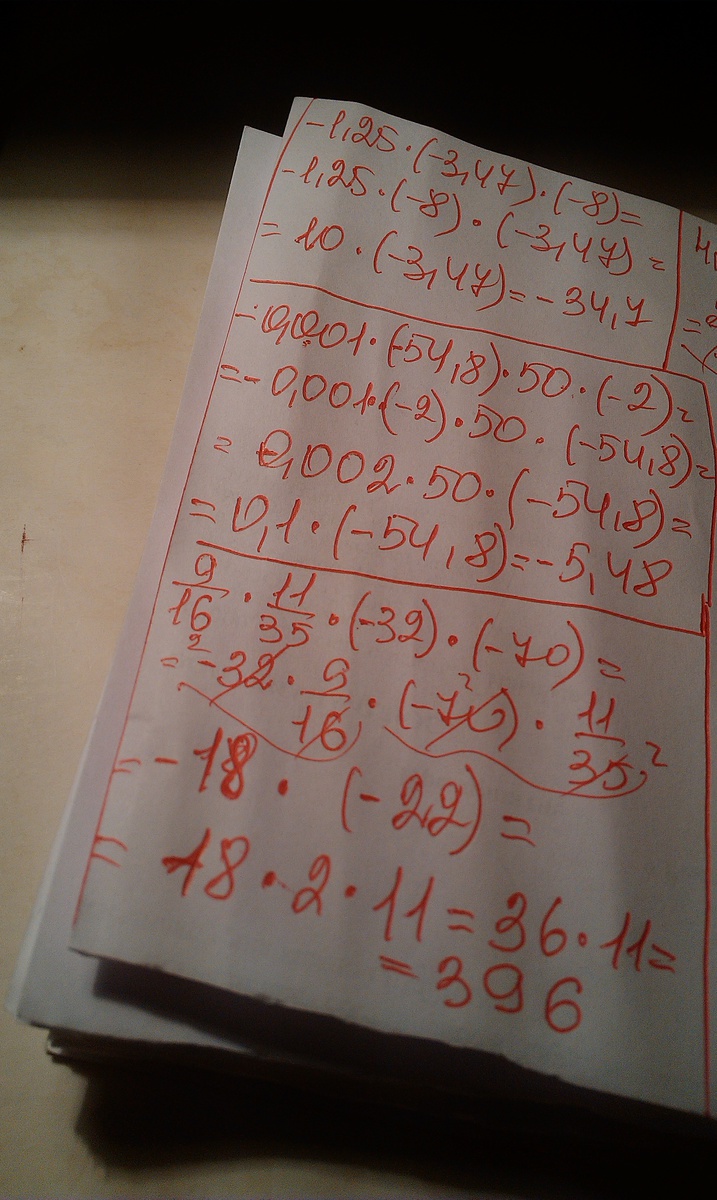 -1,25·(-3,47)·(-8)=
-1,25·(-8)·(-3,47)=
=10·(-3,47)=-34,7
-0,001·(-54,8)·50·(-2)=
=-0,001·(-2)·50·(-54,8)=
=0,002·50·(-54,8)=
=0,1·(-54,8)=-5,48
9/16·11/35·(-32)·(-70)=
=-32·9/16·(-70)·11/35
=-18·(-22)=
=18·2·11=36·11=
=396